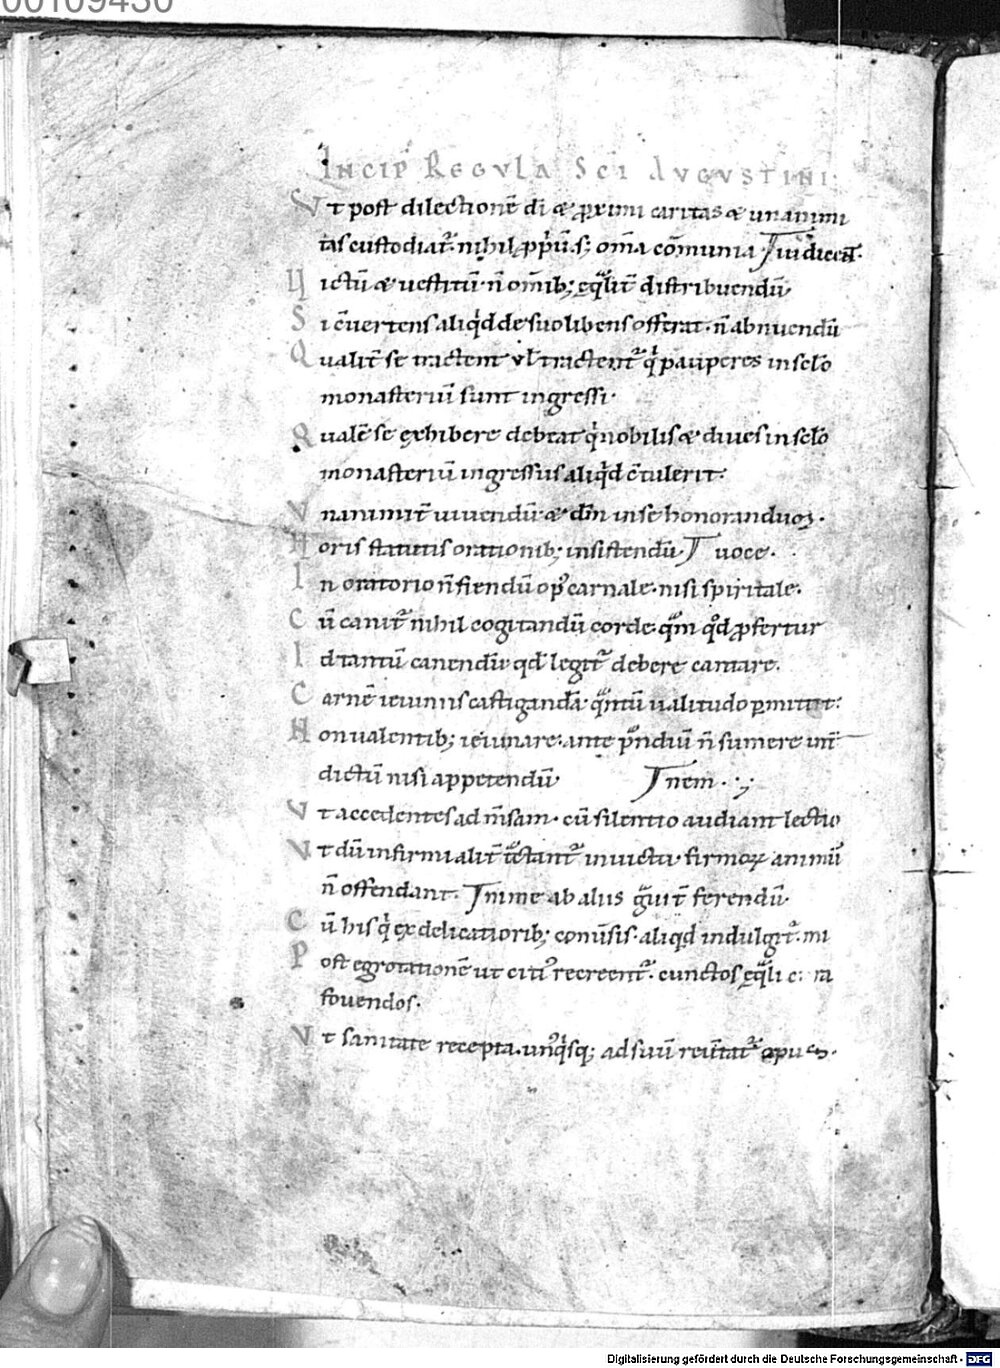 00109430
INCIP REGVLA SCI AVGVSTINI
Vt post dilectionē dī & ꝓximi caritas & unanimi
tas custodiat᷑. nihil ꝓpriū s; om̄a cōmunia
Uictū & uestitū n̄ om̄ib; ęq̄lit̄ distribuendū
Si c̄uertens aliq̇d de suo libens offerat. n̄ abnuendū
Qualit̄ se tractent ul̄ tractent᷑ q̇ pauperes in sc̄lo
monasteriū sunt ingressi.
Qualē se exhibere debeat q̇ nobilis & diues in sc̄lo
monasteriū ingressus aliq̇d c̄tulerit.
Vnanimit̄ uiuendū & dm̄ in se honorandū
Horis statutis orationib; insistendū uoce.
In oratorio n̄ fiendū opꝰ carnale. nisi spiritale.
Cū canit᷑ nihil cogitandū corde. qͣm qd̄ ꝓfertur
Id tantū canendū qd̄ legit᷑ debere cantare.
Carnē ieiuniis castigandā qͣntū ualitudo ꝑmittit.
Non ualentib; ieiunare. ante pͣndiū n̄ sumere
dictū nisi appetendū nem
Vt accedentes ad m̄sam. cū silentio audiant lectio
Vt dū infirmi alit̄ tͣctant᷑ inuictu firmoꝝ animū
n̄ offendant. ab aliis gͣuit̄ ferendū
Cū his q̇ ex delicatiorib; conūsis. aliqd̄ indulget᷑.
Post egrotationē ut citiꝰ recreent᷑. cunctos
fouendos.
Vt sanitate recepta. unꝰq̇sq; ad suū reūtat᷑ opus.
Digitalisierung gefördert durch die Deutsche Forschungsgemeinschaft - DFG